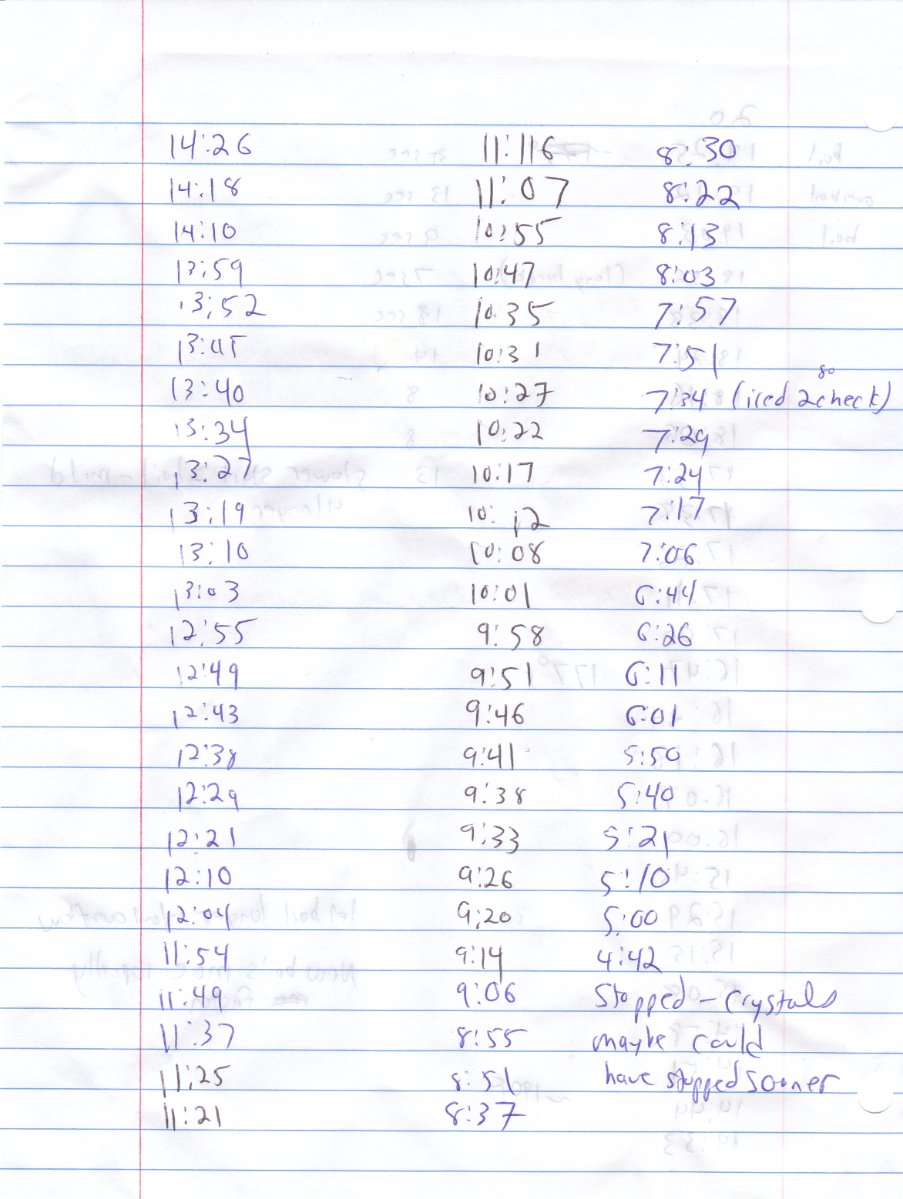 14:26
14:18
14:10
13:59
13:52
13:45
13:40
13:34
13:27
13:19
13:10
13:03
12:55
12:49
12:43
12:38
12:29
12:21
12:10
12:04
11:54
11:49
11:37
11:25
11:21
11:116
11:07
10:55
10:47
10:35
10:31
10:27
10:22
10:17
10:12
10:08
10:01
9:58
9:51
9:46
9:41
9:38
9:33
9:26
9:20
9:14
9:06
8:55
8:51
8:37
8:30
8:22
8:13
8:03
7:57
7:51
so
7:34 (iced 2check)
7:29
7:24
7:17
7:06
6:44
6:26
6:11
6:01
5:50
5:40
5:21
5:10
5:00
4:42
Stopped - Crystals
maybe could
have stopped sooner